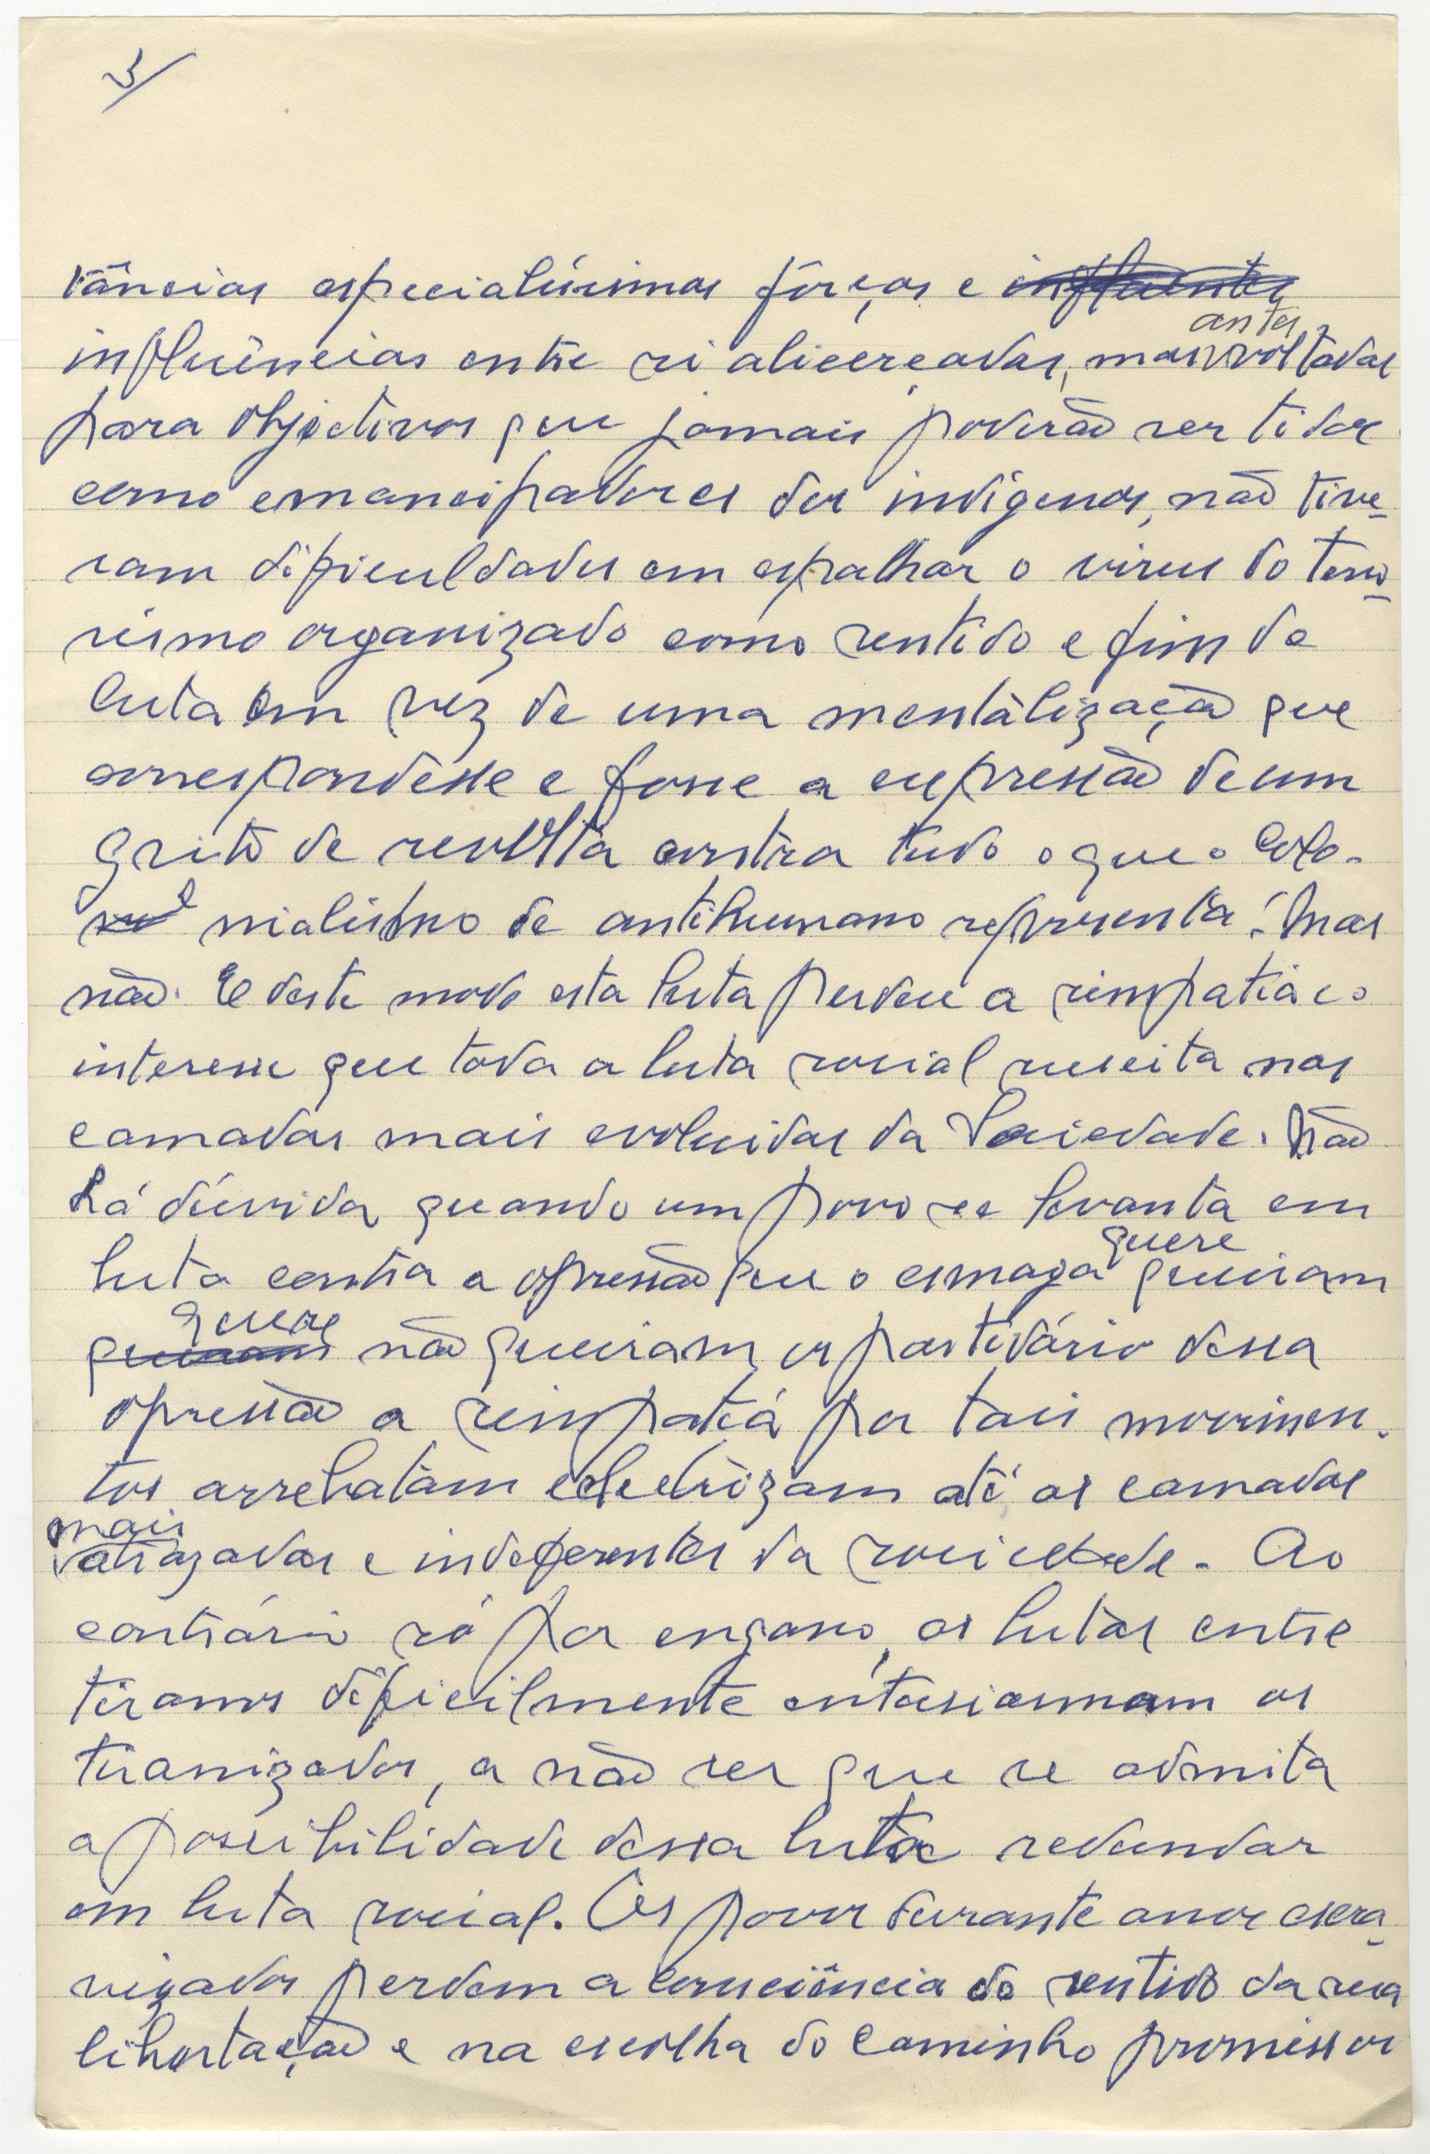 3/
tâncias especialíssimas fôrças e influentes
antes
influências entre si alicerçadas, mas voltadas
para objectivos que jamais poderão ser tidos
como emancipadores dos indígenas, não tive-
ram dificuldades em espalhar o virus do terro-
rismo organizado como sentido e fim da
luta em vez de uma mentalização que
correspondesse e fosse a expressão de um
grito de revolta contra tudo o que o Colo-
nialismo de antihumano representa! Mas
não. E deste modo esta luta perdeu a simpatia e o
interesse que toda a luta social suscita nas
camadas mais evoluidas da Sociedade. Não
há dúvida, quando um povo se levanta em
luta contra a opressão que o esmaga queiram
quere
quere
queiram não queiram os partidário dessa
opressão a simpatia por tais movimen-
tos arrebatam electrizam até as camadas
mais
atrazadas e indeferentes da sociedade. Ao
contrário só por engano, as lutas entre
tiranos dificilmente entusiasmam os
tiranizados, a não ser que se admita
a possibilidade dessa luta redundar
em luta social. Os povos durante anos escra-
vizados perdem a consciência do sentido da sua
libertação e na escolha do caminho promissor